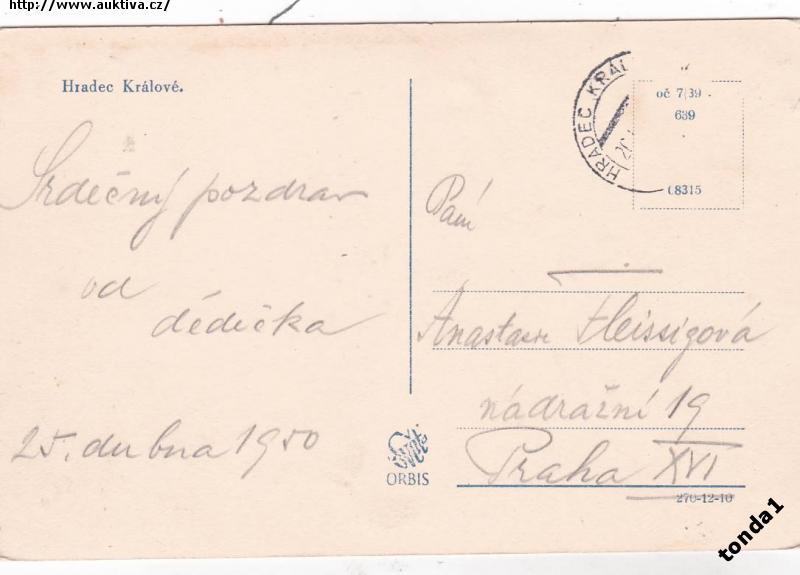 http://www.auktiva.cz/
Hradec Králové.
Srdečný pozdrav
od
dědečka
25. dubna 1950
HRADEC KRÁL
oč 7|39
639
08315
Paní
Anastasie Fleissigová
nádražní 19
Praha XVI
Orbis
ORBIS
270-12-10
tonda1